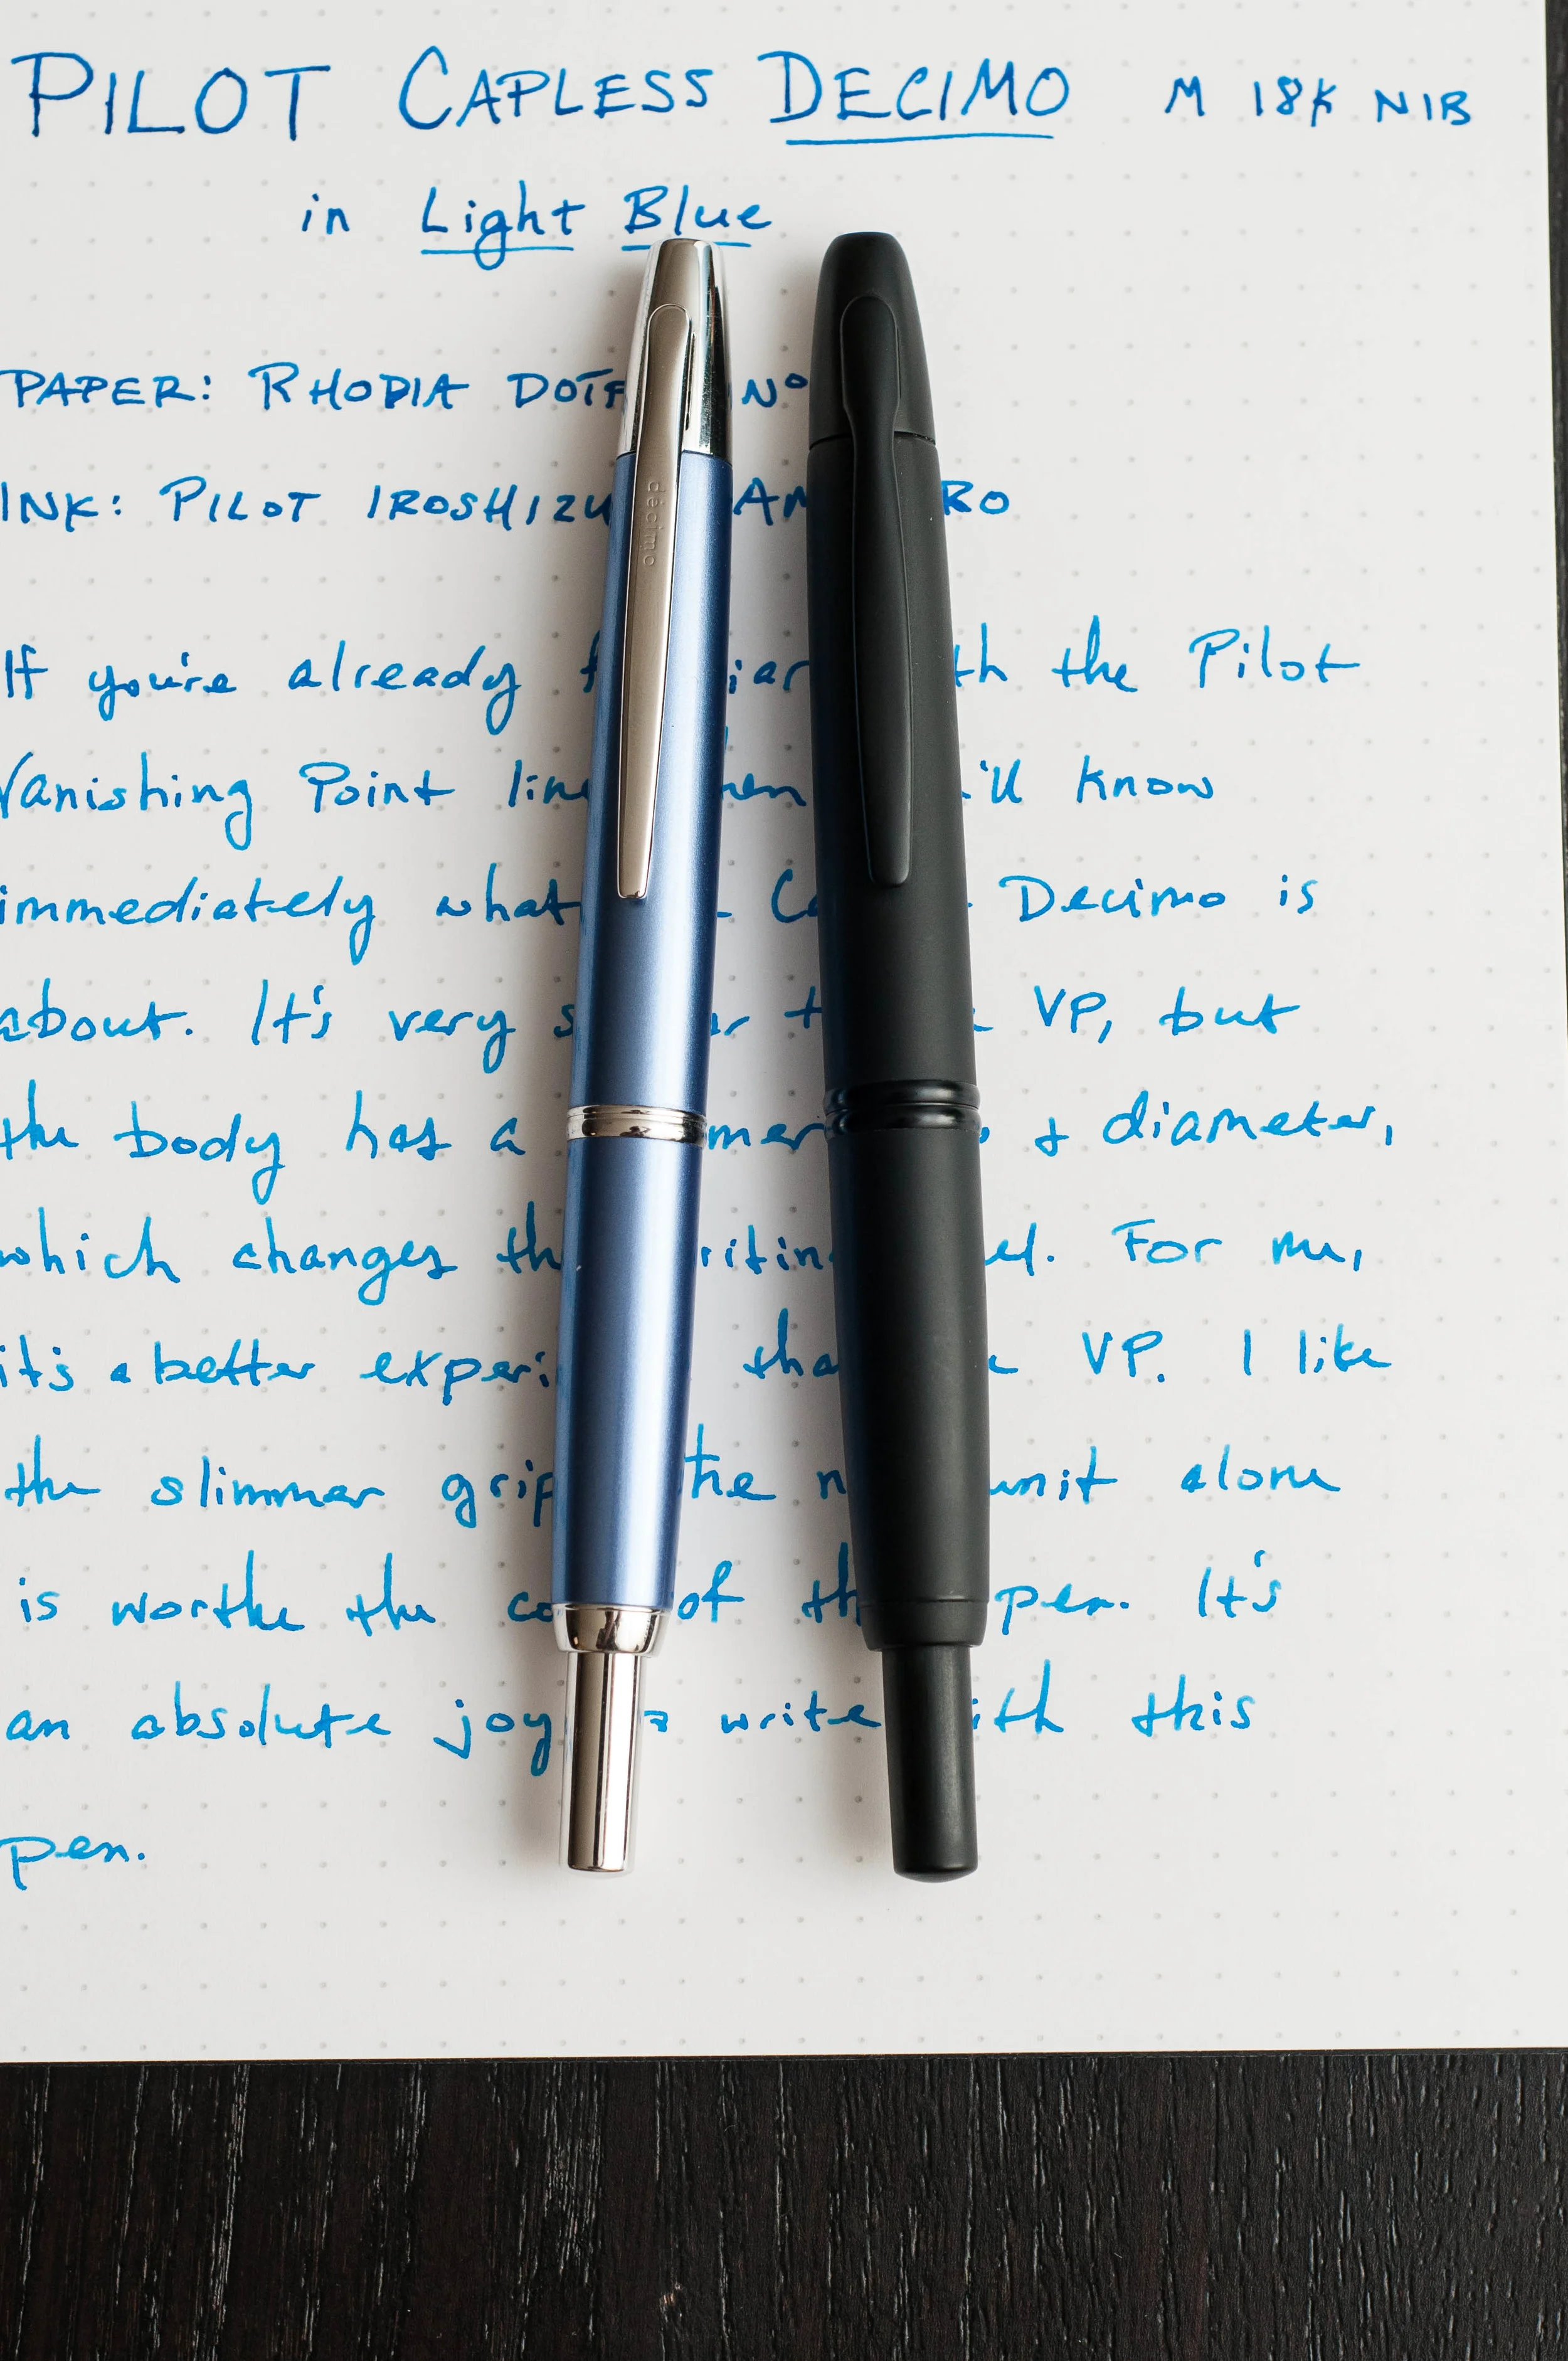 PILOT CAPLESS DECIMO M 18K NIB
in Light Blue
PAPER: RHODIA Nº
INK: PILOT IROSHIZU
décimo
If you're already the Pilot
Vanishing Point know
immediately what Decimo is
about. It's very VP, but
the body has a + diameter,
which changes For me,
it's a better VP. I like
the slimmer grip unit alone
is worthe the of pen. It's
an absolute joy write this
pen.